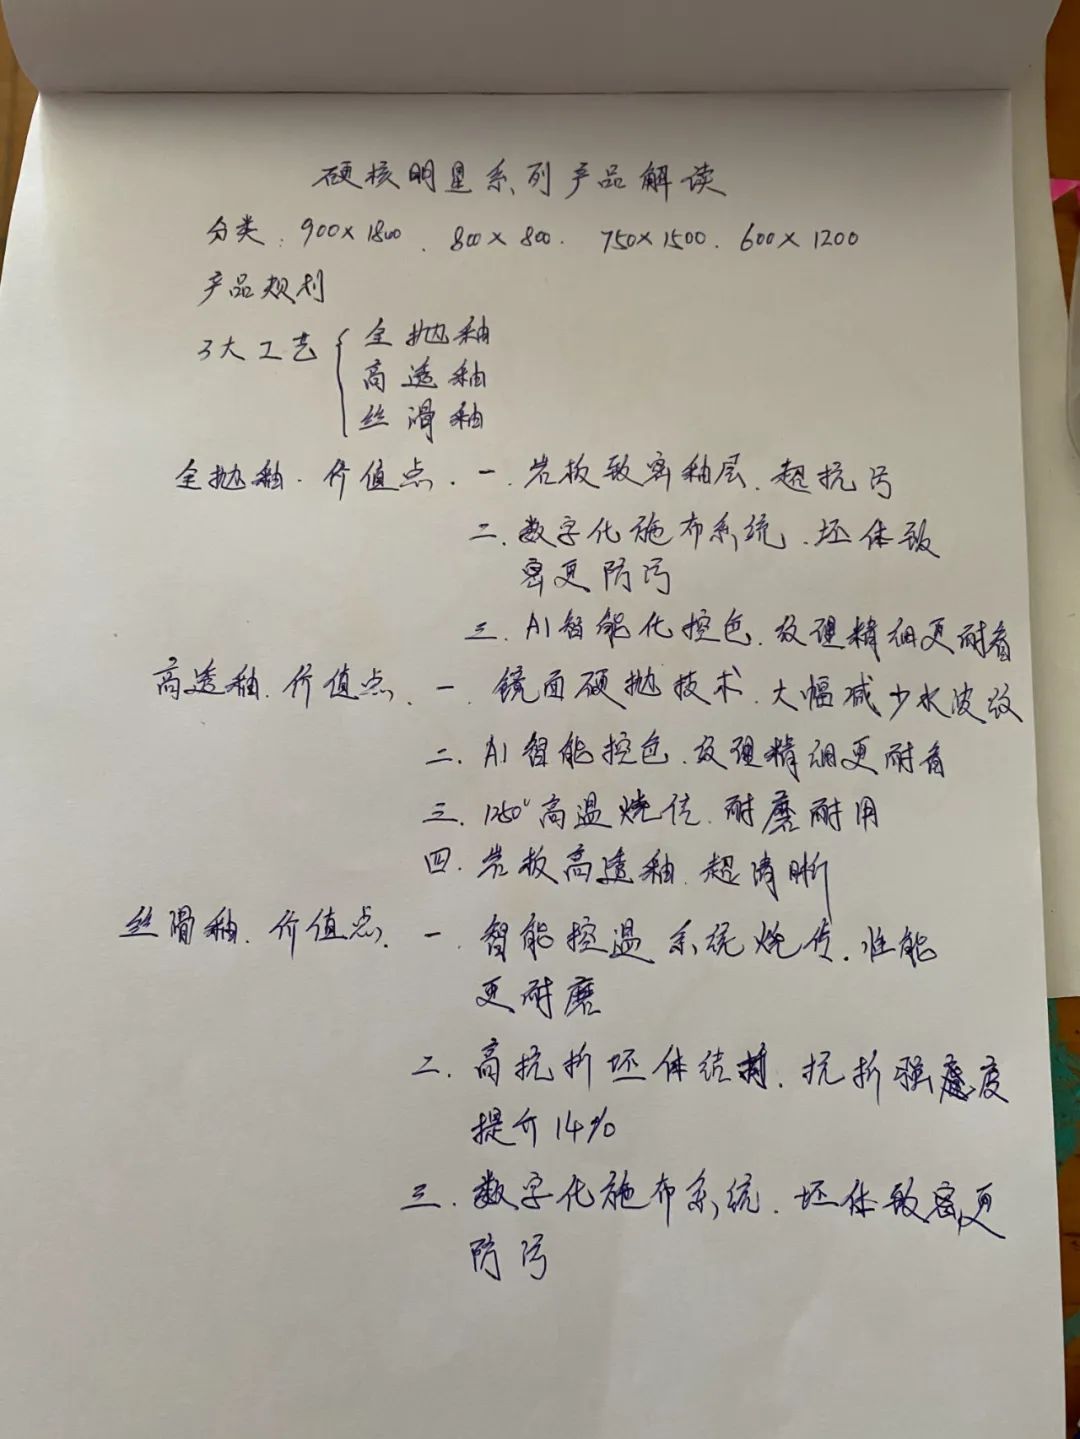 硬核明星系列产品解读
分类:900×1800、800×800、750×1500、600×1200
产品规划
3大工艺{全抛釉
高透釉
丝滑釉
全抛釉、价值点、一、岩板致密釉层、超抗污
二、数字化施布系统、坯体致
密更防污
三、AI智能化控色、纹理精细更耐看
高透釉、价值点、一、镜面硬抛技术、大幅减少水波纹
二、AI智能控色、纹理精细更耐看
三、1250°高温烧、耐磨耐用
四、岩板高透釉、超清晰
丝滑釉、价值点、一、智能控温系统烧、性能
更耐磨
二、高抗折坯体结、抗折强度
提介14%
三、数字化施布系统、坯体致密更
防污